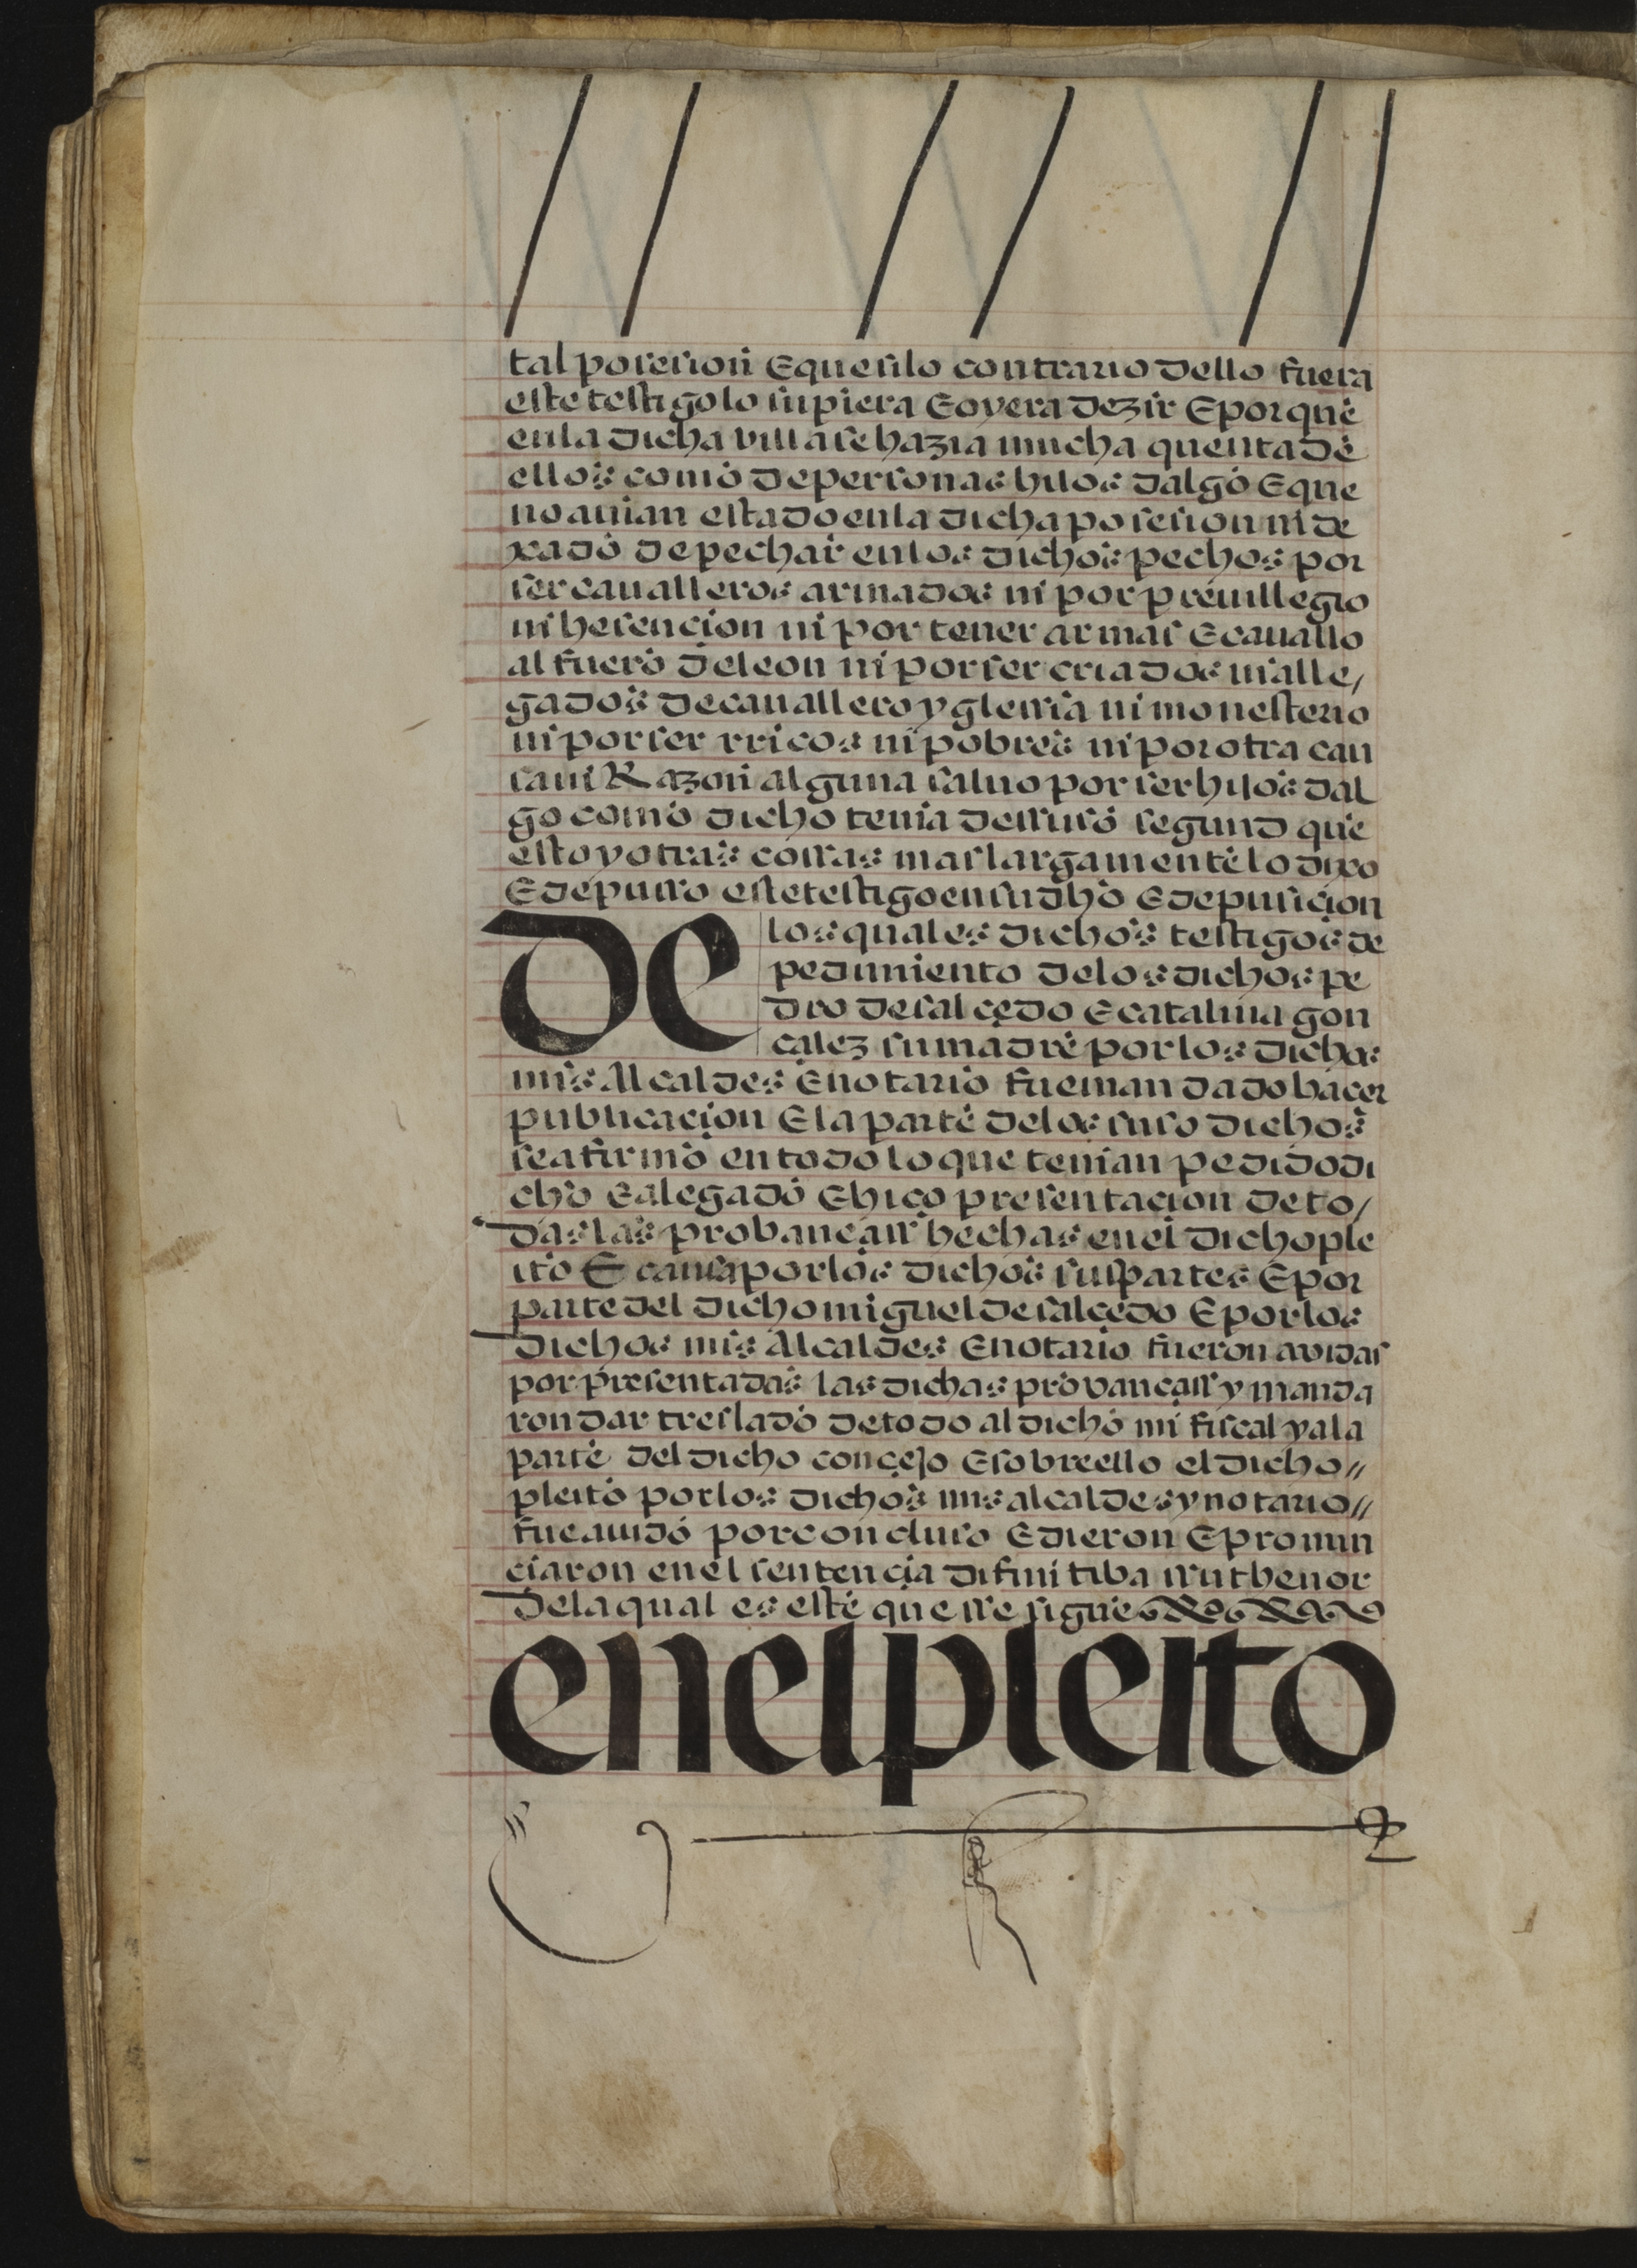 tal posesion E que si lo contrario dello fuera
este testigo lo supiera E oyera dezir E porque
en la dicha villa se hazia mucha quenta de
ellos como de personas hijos dalgo E que
no avian estado en la dicha posesion ni de
xado de pechar en los dichos pechos por
ser cavalleros armados ni por previllegio
ni hesencion ni por tener armas E cavallo
al fuero de leon ni por ser criados ni alle/
gados de cavallero yglessia ni monesterio
ni por ser rricos ni pobres ni por otra cau
sa ni Razon alguna salvo por ser hijos dal
go como dicho tenia dessuso segund que
esto y otras cossas mas largamente lo dixo
E depusso este testigo en su dho E depusicion
De los quales dichos testigos de
pedimiento de los dichos pe
dro de salçedo E catalina gon
çalez su madre por los dichos
mis Alcaldes E notario fue mandado hacer
publicaçion E la parte de los suso dichos
se afirmo en todo lo que tenian pedido di
cho E alegado E hiço presentaçion de to/
das las probançass hechas en el dicho ple
ito E caussa por los dichos sus partes E por
parte del dicho miguel de salçedo E por los
dichos mis Alcaldes E notario fueron avidas
por presentadas las dichas provançass y manda
ron dar treslado de todo al dicho mi fiscal y a la
parte del dicho conçejo E sobre ello el dicho //
pleito por los dichos mis alcaldes y notario //
fue avido por concluso E dieron E pronun
ciaron en el sentençia difinitiba ssu thenor
de la qual es este que sse sigue
en el pleito